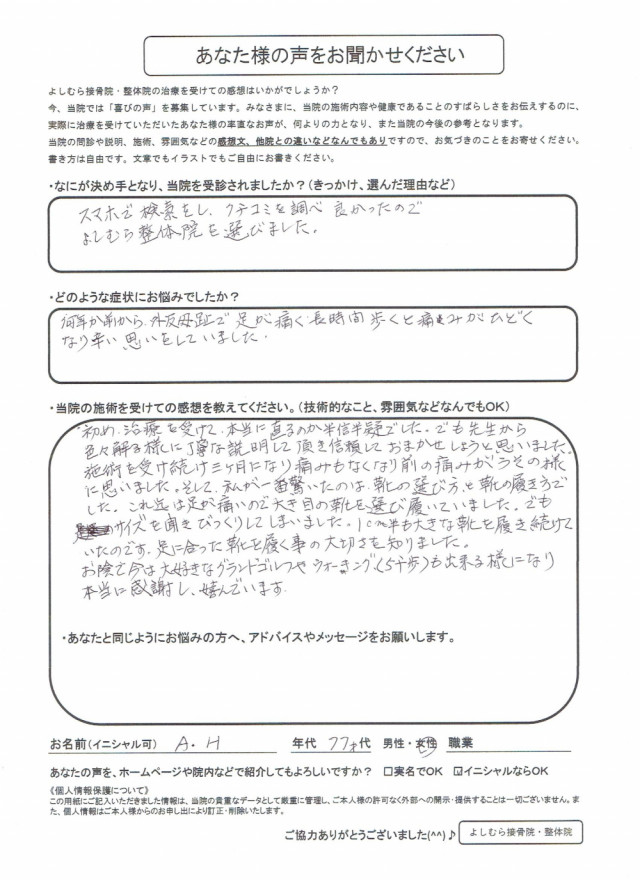 あなた様の声をお聞かせください
よしむら接骨院・整体院の治療を受けての感想はいかがでしょうか?
今、当院では「喜びの声」を募集しています。みなさまに、当院の施術内容や健康であることのすばらしさをお伝えするのに、
実際に治療を受けていただいたあなた様の率直なお声が、何よりの力となり、また当院の今後の参考となります。
当院の問診や説明、施術、雰囲気などの感想文、他院との違いなどなんでもありですので、お気づきのことをお寄せください。
書き方は自由です。文章でもイラストでもご自由にお書きください。
・なにが決め手となり、当院を受診されましたか?(きっかけ、選んだ理由など)
スマホで検索をし、クチコミを調べ良かったので
よしむら整体院を選びました。
・どのような症状にお悩みでしたか?
何年か前から、外反母趾で足が痛く長時間歩くと痛みがひどく
なり辛い思いをしていました。
・当院の施術を受けての感想を教えてください。(技術的なこと、雰囲気などなんでもOK)
初め、治療を受けて、本当に直るのか半信半疑でした。でも先生から
色々解る様に丁寧な説明して頂き信頼しておまかせしようと思いました。
施術を受け続け三ヶ月になり痛みもなくなり前の痛みがうその様
に思いました。そして、私が一番驚いたのは、靴の選び方と靴の履き方で
した。これ迄は足が痛いので大き目の靴を選び履いていました。でも
サイズを聞きびっくりしてしまいました。1cm半も大きな靴を履き続けて
いたのです。足に合った靴を履く事の大切さを知りました。
お陰で今は大好きなグランドゴルフやウォーキング(5千歩)も出来る様になり
本当に感謝し、嬉んでいます。
・あなたと同じようにお悩みの方へ、アドバイスやメッセージをお願いします。
お名前(イニシャル可) A・H 年代 77才代 男性・女性 職業
あなたの声を、ホームページや院内などで紹介してもよろしいですか? □実名でOK ☑イニシャルならOK
《個人情報保護について》
この用紙にご記入いただきました情報は、当院の貴重なデータとして厳重に管理し、ご本人様の許可なく外部への開示・提供することは一切ございません。ま
た、個人情報はご本人様からのお申し出により訂正・削除いたします。
ご協力ありがとうございました(^^)♪ よしむら接骨院・整体院